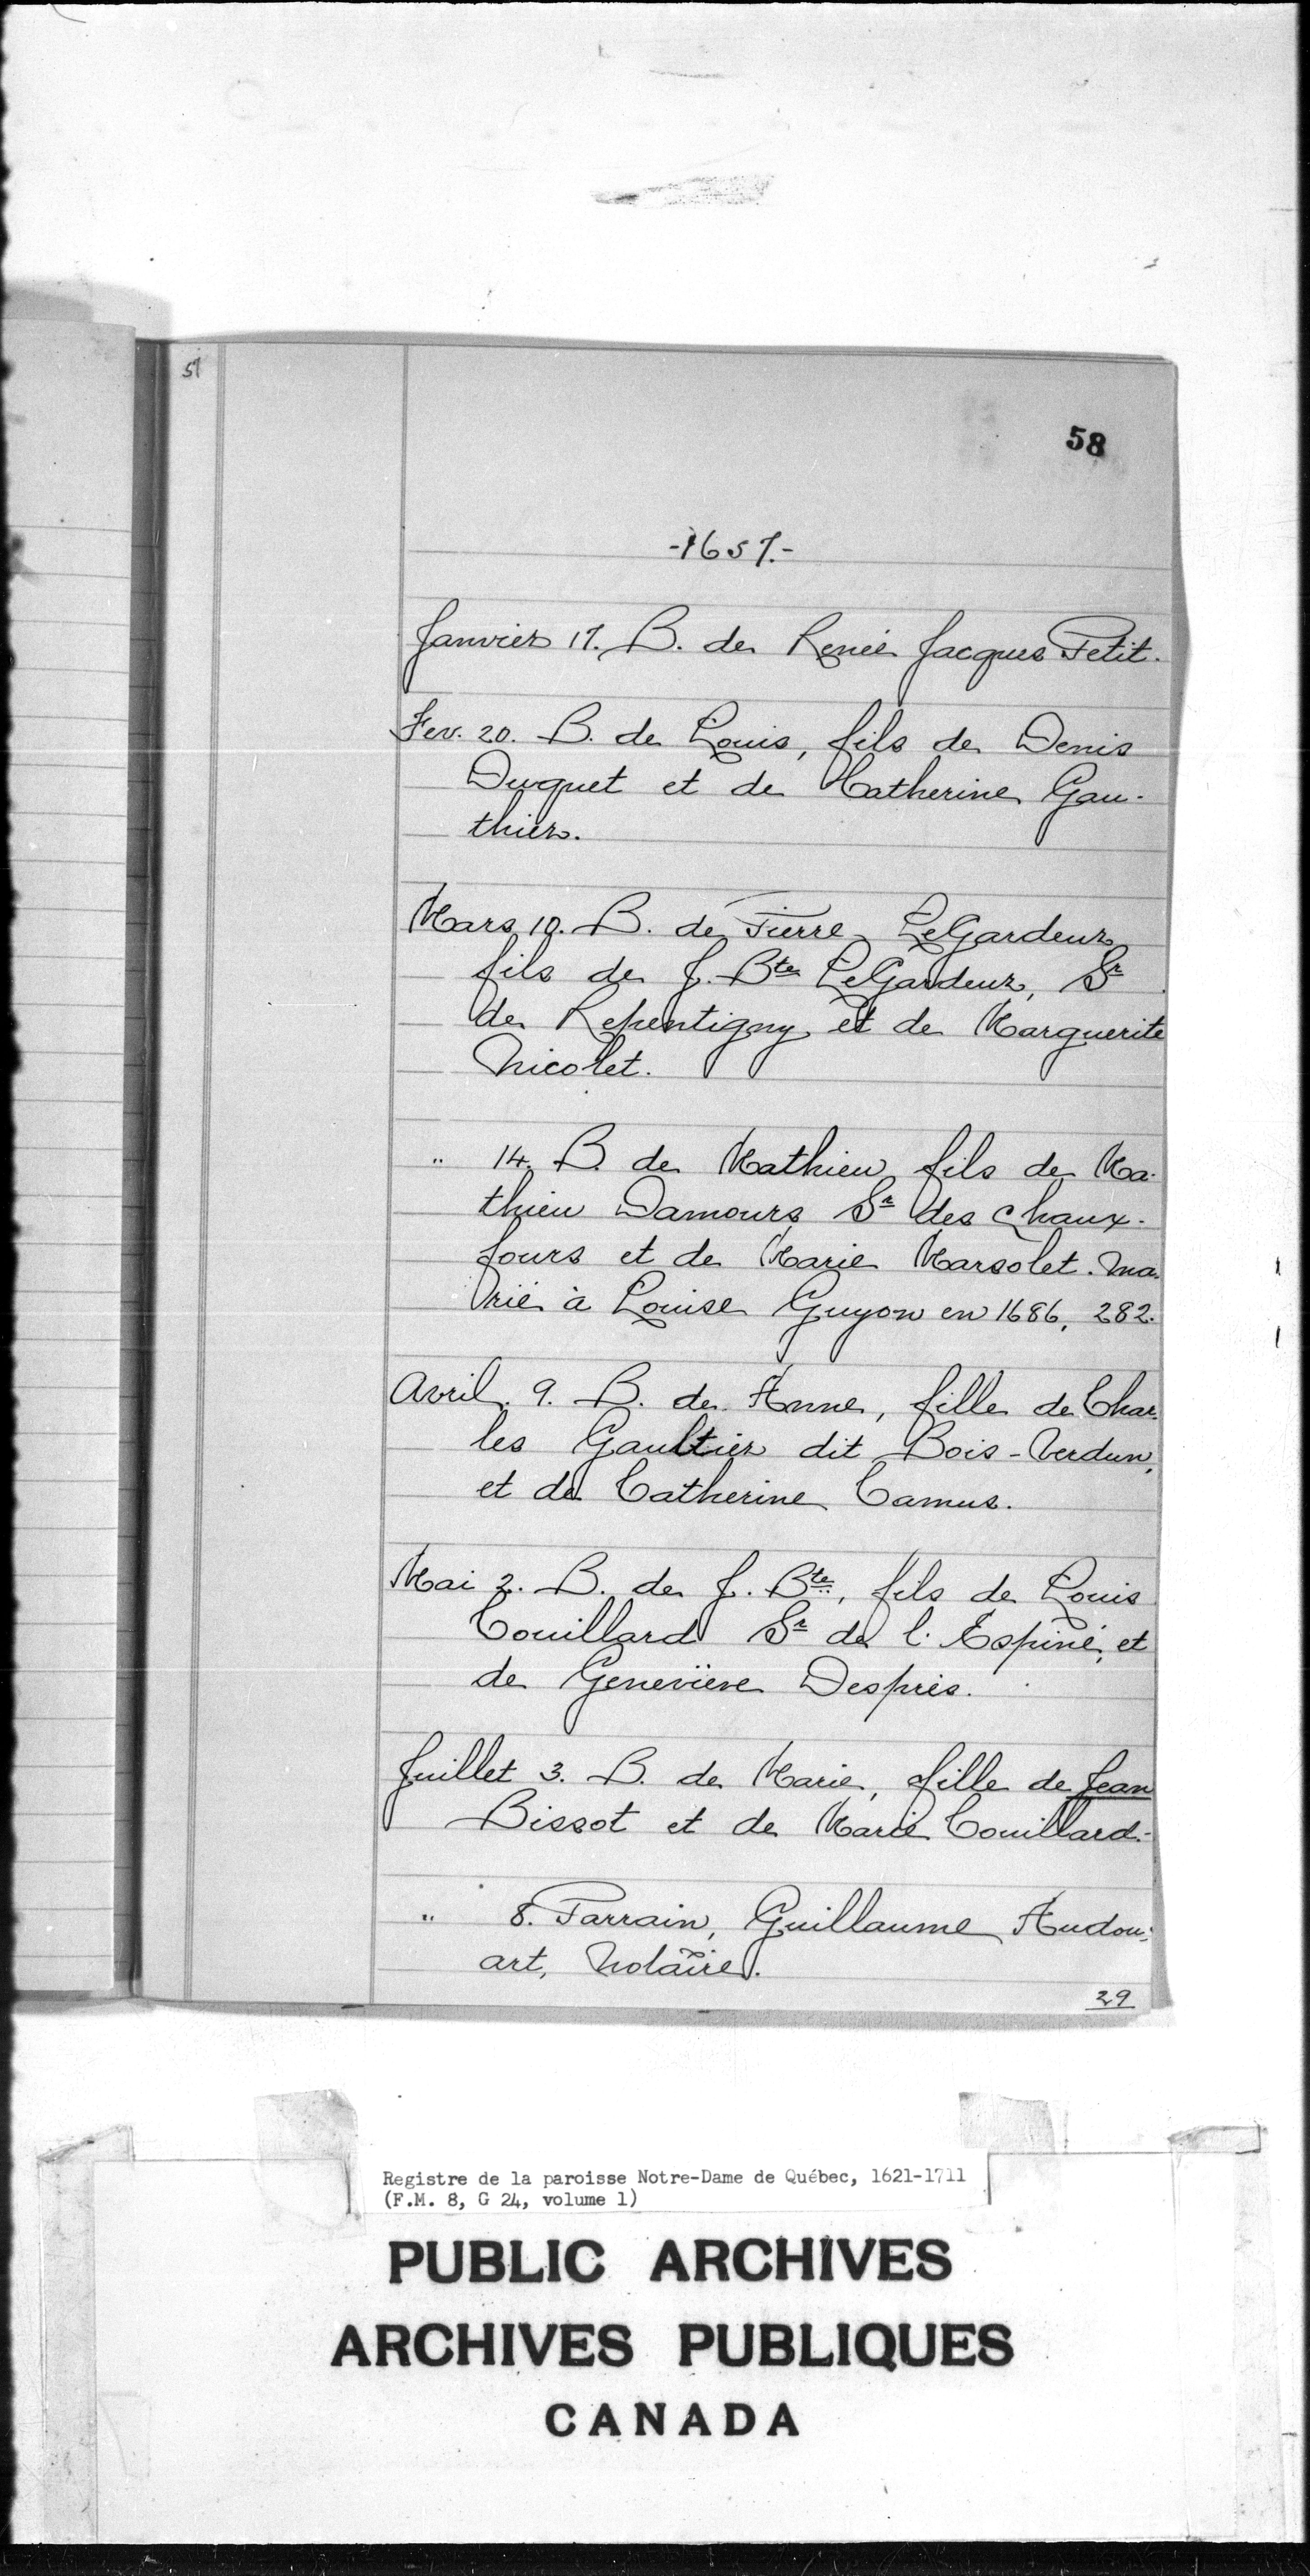 57
58
-1657.-
Janvier 17. B. de René Jacques Petit.
Fev. 20. B. de Louis, fils de Denis
Duquet et de Catherine Gau-
thier.
Mars 10. B. de Pierre LeGardeur
fils de J. Bte LeGardeur, Sr
de Repentigny et de Marguerite
Nicolet.
" 14. B. de Mathieu fils de Ma-
thieu Damours Sr des Chaux-
fours et de Marie Marsolet. Ma-
rié à Louise Guyon en 1686, 282.
Avril 9. B. de Anne, fille de Char-
les Gaultier dit Bois-Verdun,
et de Catherine Camus.
Mai 2. B. de J. Bte, fils de Louis
Couillard Sr de l'Espiné, et
de Geneviève Desprès.
Juillet 3. B. de Marie, fille de Jean
Bissot et de Marie Couillard.-
" 8. Parrain, Guillaume Audou-
art, Notaire.
29
Registre de la paroisse Notre-Dame de Québec, 1621-1711
(F.M. 8, G 24, volume 1)
PUBLIC ARCHIVES
ARCHIVES PUBLIQUES
CANADA